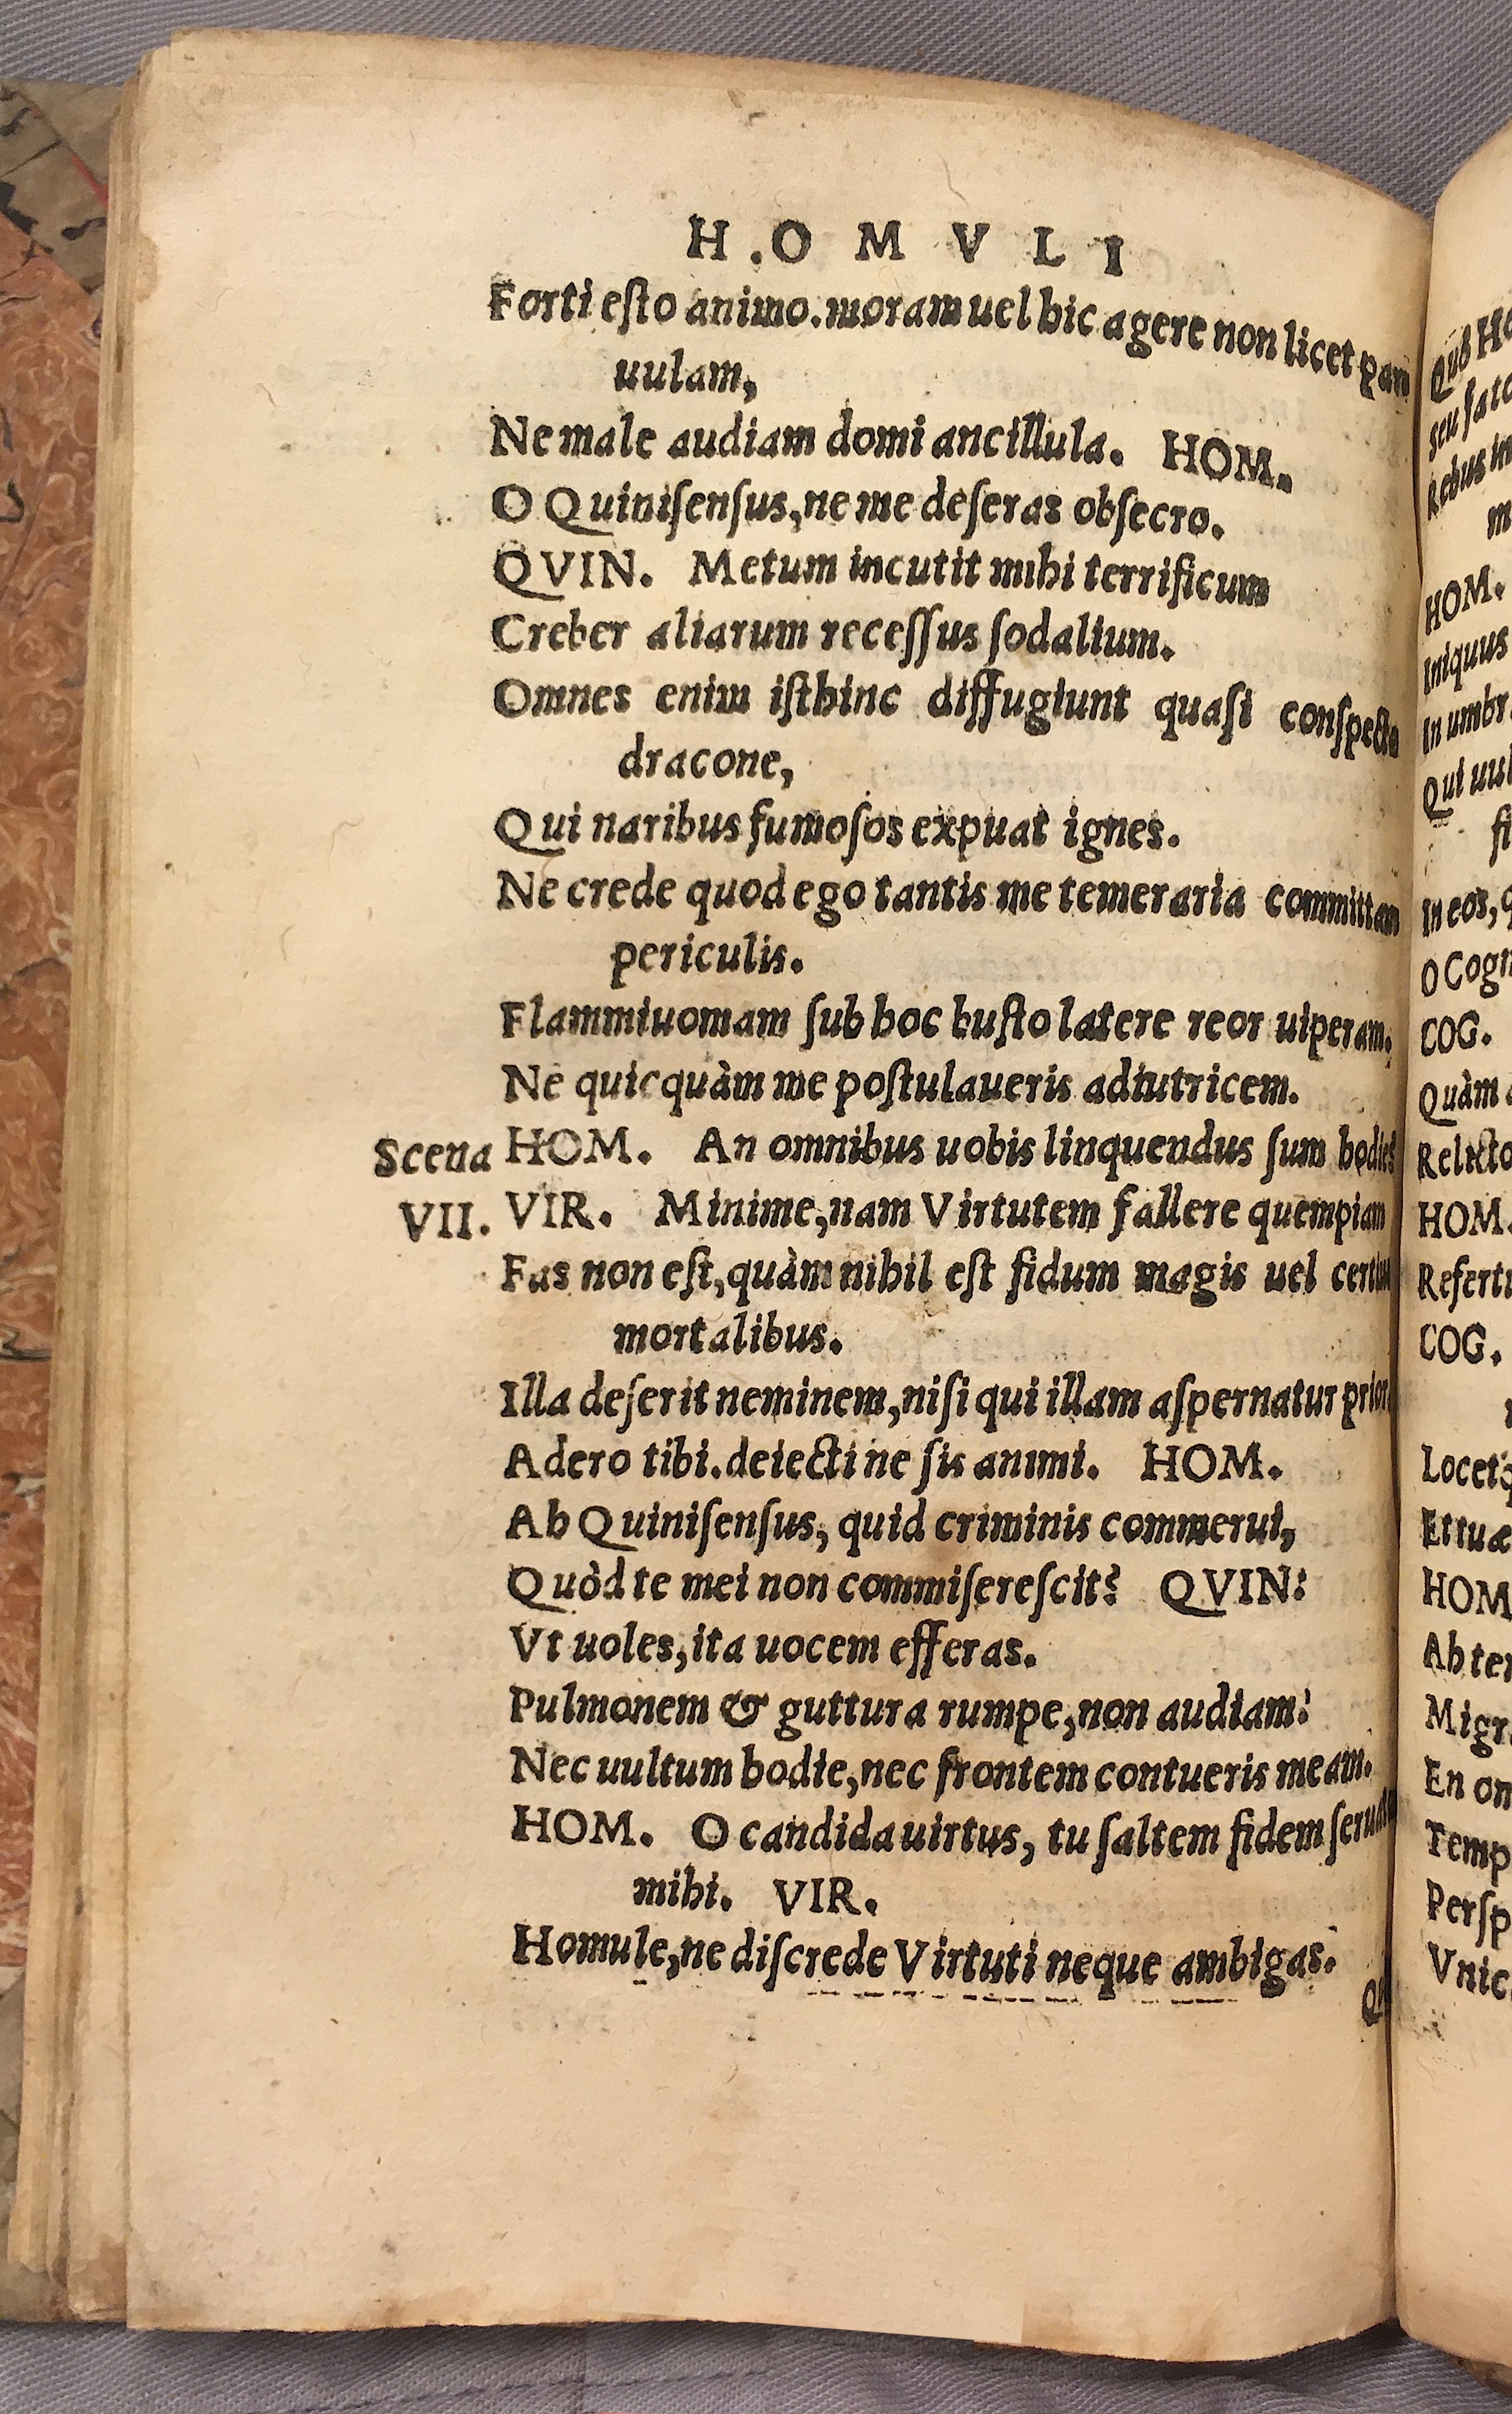 H.O M V L I
Forti eſto animo.moram uel hic agere non licet par
uulam,
Ne male audiam domi ancillula. HOM.
O Quiniſenſus,ne me deſeras obſecro.
QVIN. Metum incutit mihi terrificum
Creber aliarum receſſus ſodalium.
Omnes enim iſthinc diffugiunt quaſi conſpecto
dracone,
Qui naribus fumoſos expuat ignes.
Ne crede quod ego tantis me temeraria committam
periculis.
Flammiuomam ſub hoc buſto latere reor uiperam.
Ne quicquàm me poſtulaueris adiutricem.
Scena HOM. An omnibus uobis linquendus ſum hodie?
VII. VIR. Minime,nam Virtutem fallere quempiam
Fas non eſt,quàm nihil eſt fidum magis uel
mortalibus.
Illa deſerit neminem,niſi qui illam aſpernatur
Adero tibi.deiecti ne ſis animi. HOM.
Ah Quiniſenſus, quid criminis commerui,
Quòd te mei non commiſereſcit? QVIN:
Vt uoles,ita uocem efferas.
Pulmonem & guttura rumpe,non audiam:
Nec uultum hodie,nec frontem contueris meam.
HOM. O candida uirtus, tu ſaltem fidem
mihi. VIR.
Homule,ne diſcrede Virtuti neque ambigas.
HOM.
Iniquus
In eos,
COG.
Quàm
HOM.
COG.
HOM